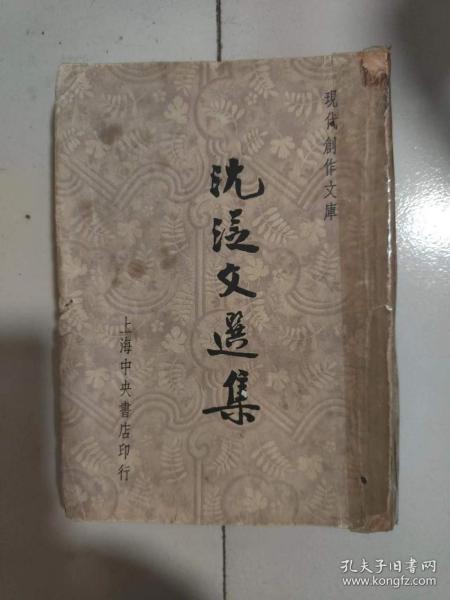 現代創作文庫
沈从文選集
上海中央書店印行
孔夫子旧书网
www.kongfz.com